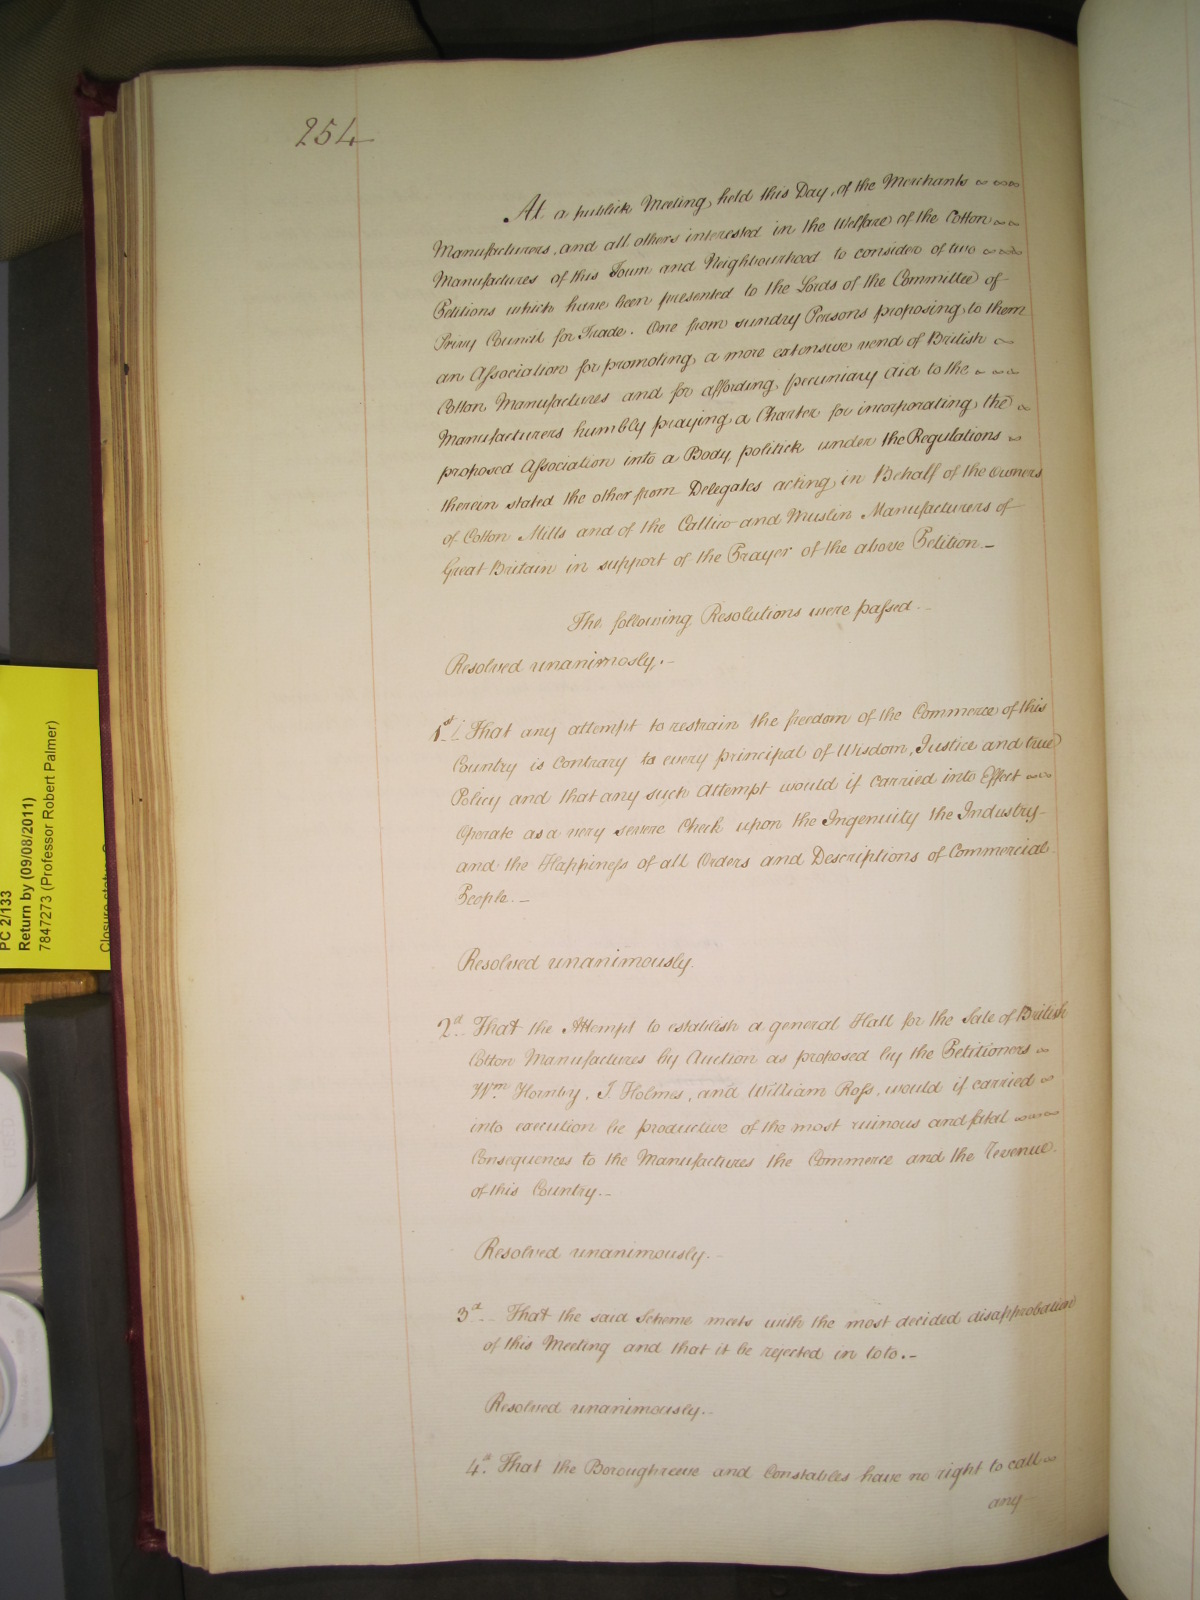 254
At a publick Meeting held this Day, of the Merchants
Manufacturers, and all others interested in the Welfare of the Cotton
Manufactures of this Town and Neighbourhood to consider of two
Petitions which have been presented to the Lords of the Committee of
Privy Council for Trade. One from sundry Persons proposing to them
an Association for promoting a more extensive vend of British
Cotton Manufactures and for affording pecuniary Aid to the
Manufacturers humbly praying a Charter for incorporating the
proposed Association into a Body politick under the Regulations
therein stated the other from Delegates acting in Behalf of the Owners
of Cotton Mills and of the Callico and Muslin Manufacturers of
Great Britain in support of the Prayer of the above Petition.
The following Resolutions were passed.
Resolved unanimosly.
1st. That any attempt to restrain the freedom of the Commerce of this
Country is Contrary to every principal of Wisdom, Justice and true
Policy and that any such Attempt would if carried into Effect
Operate as a very severe Check upon the Ingenuity the Industry
and the Happiness of all Orders and Descriptions of Commercial
People.
Resolved unanimously.
2d. That the Attempt to establish a general Hall for the Sale of British
Cotton Manufactures by Auction as proposed by the Petitioners
Wm. Hornby, T. Holmes, and William Ross, would if carried
into execution be productive of the most ruinous and fatal
Consequences to the Manufactures the Commerce and the Revenue
of this Country.
Resolved unanimously.
3d. That the said Scheme meets with the most decided disapprobation
of this Meeting and that it be rejected in toto.
Resolved unanimously.
4th. That the Boroughreeve and Constables have no right to call
any
PC 2/133
Return by (09/08/2011)
7847273 (Professor Robert Palmer)